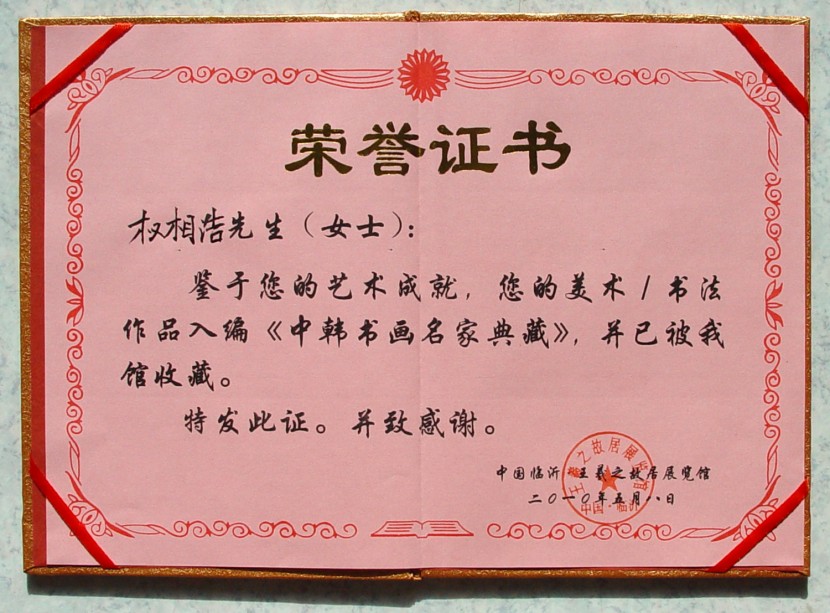 荣誉证书
权相浩先生（女士）：
鉴于您的艺术成就，您的美术/书法
作品入编《中韩书画名家典藏》，并已被我
馆收藏。
特发此证。并致感谢。
中国临沂 王羲之故居展览馆
二〇一〇年五月八日
王羲之故居展览馆
中国·临沂